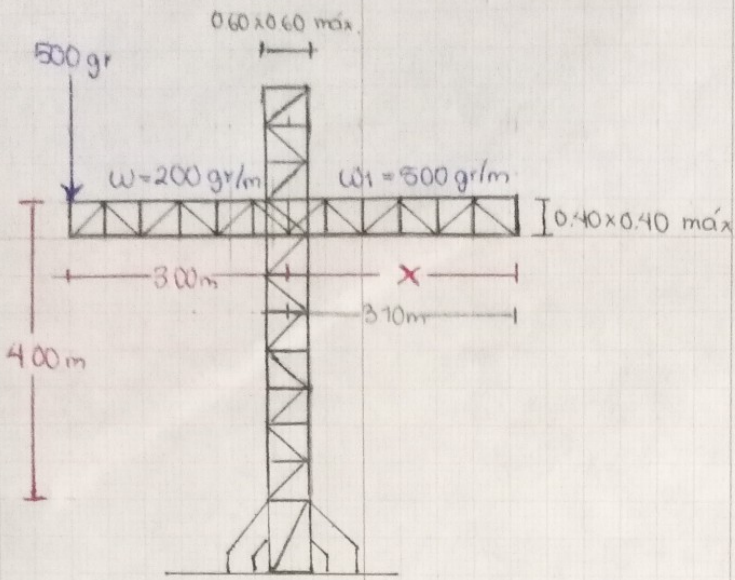 060x0.60 máx.
500 gr
W=200 gr/m
W1=500 gr/m
0.40x0.40 máx
3.00m
X
3.10m
4.00m